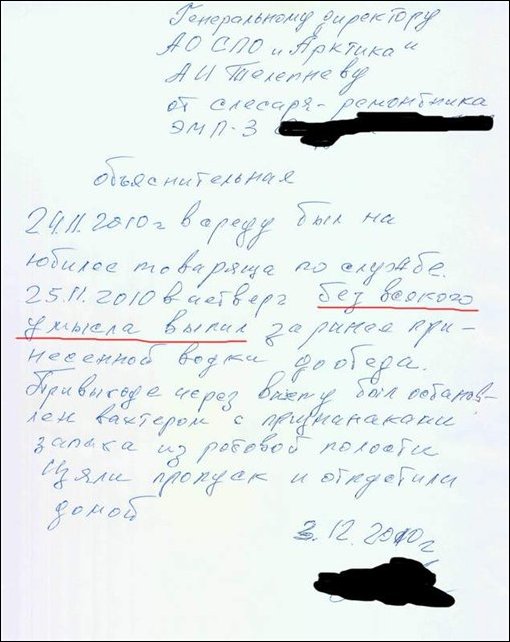 Генеральному директору
АО СПО "Арктика"
А И Телепневу
от слесаря-ремонтника
ЭМП-3
объяснительная
24.11.2010г в среду был на
юбилее товарища по службе.
25.11.2010 в четверг без всякого
умысла выпил заранее при-
несенной водки до обеда.
При выходе через вахту был останов-
лен вахтером с признанаками
запаха из ротовой полости
Изяли пропуск и отпустили
домой
3.12.2010г